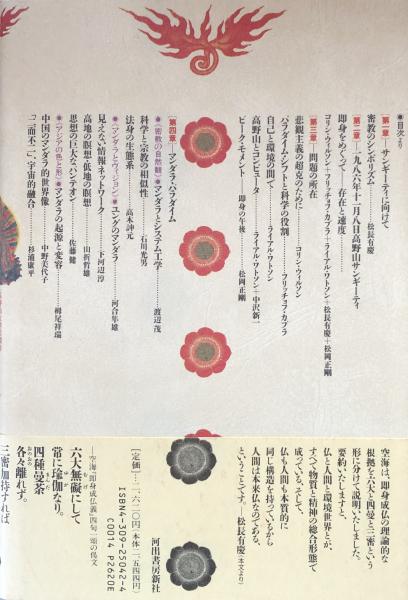 ●目次より
[第一章] サンギーティに向けて
密教のシンボリズム――松長有慶
[第二章] 一九八六年十一月八日高野山サンギーティ
即身をめぐって――存在と速度――
コリン・ウィルソン+フリッチョフ・カプラ+ライアル・ワトソン+松長有慶+松岡正剛
[第三章] 問題の所在
悲観主義の超克のために――コリン・ウィルソン
パラダイム・シフトと科学の役割――フリッチョフ・カプラ
自己と環境の間で――ライアル・ワトソン
高野山とコンピュータ――ライアル・ワトソン+中沢新一
ピーク・モメント――即身の午後――松岡正剛
[第四章] マンダラ・パラダイム
●《密教の自然観》●マンダラとシステム工学――渡辺茂
科学と宗教の相似性――石川光男
法身の生態系――高木訷元
●《マンダラとヴィジョン》●ユングのマンダラ――河合隼雄
見えない情報ネットワーク――下河辺淳
高地の瞑想・低地の瞑想――山折哲雄
思想の巨大なパンテオン――佐藤健
●《アジアの色と形》●マンダラの起源と変容――栂尾祥瑞
中国のマンダラ的世界像――中野美代子
「二而不二」、宇宙的融合――杉浦康平
空海は、「即身成仏の理論的な
根拠を六大と四曼と三密という
形に分けて説明いたしました。
要約いたしますと、
仏と人間と環境世界とが、
すべて物質と精神の総合形態で
成っている。そして、
仏も人間も本質的に
同じ構造を持っているから
人間は本来仏なのである、
ということです。 松長有慶(本文より)
[定価]…二、六二〇円(本体 二、五四四円)
河出書房新社
ISBN4-309-25042-4
C0014 P2620E
――空海『即身成仏義』四句一頌の偈文
六大無礙にして
常に瑜伽なり。
四種曼荼
各々離れず。
三密加持すれば